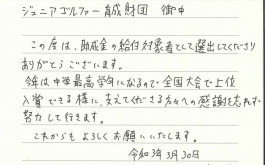 ジュニアゴルファー育成財団 御中
この度は、助成金の給付対象者として選出してくださり
ありがとうございます。
今年は中学最高学年になるので全国大会で上位
入賞できる様に、支えてくださる方々への感謝を忘れず
努力して行きます。
これからもよろしくお願いいたします。
令和3年3月30日